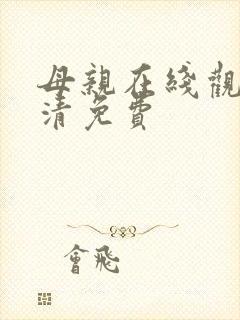 母親在綫觀
清免費
會飛